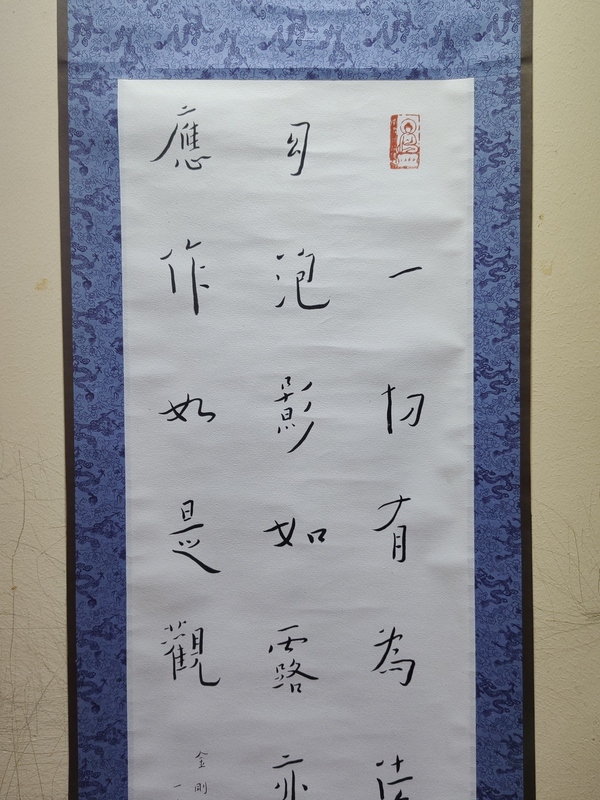 一切有為
幻泡影如露亦
應作如是觀
金剛
一